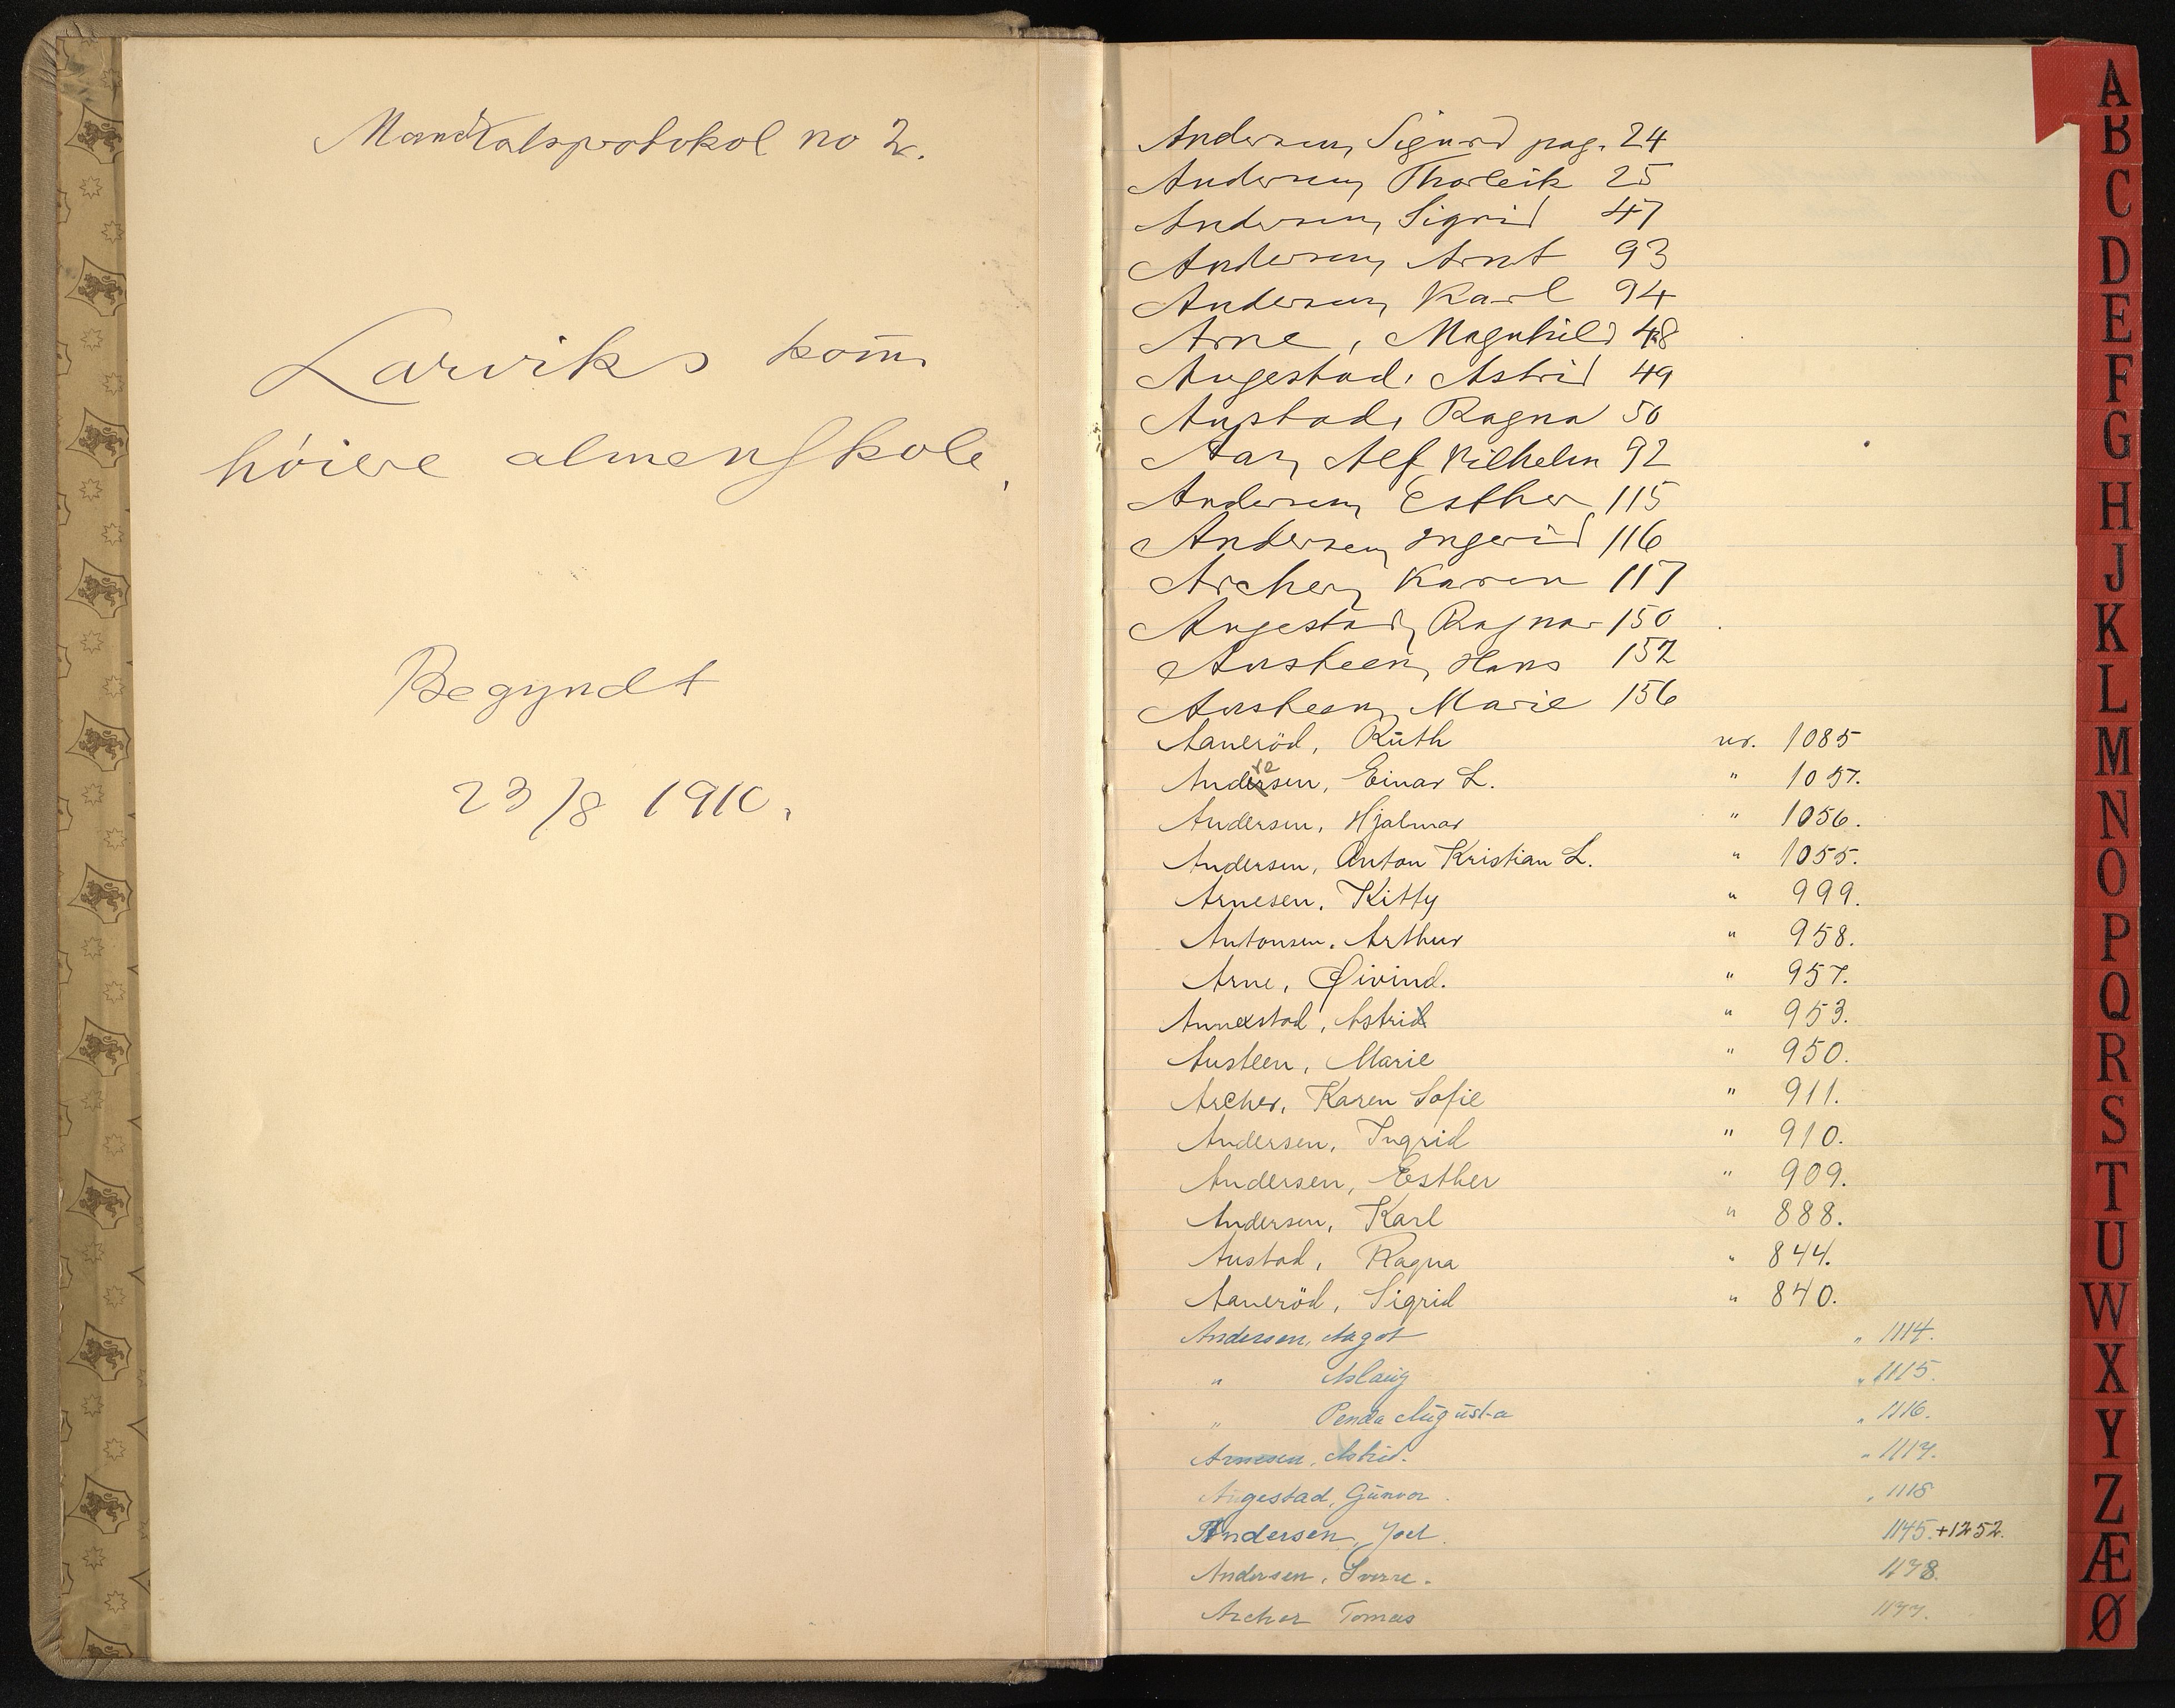 Mandtalsprotokol no 2.
Larviks kom̄.
höiere almenskole.
Begyndt
23/8 1910.
Andersen, Sigurd pag. 24
Andersen, Thorleik 25
Andersen, Sigrid 47
Andersen, Arnt 93
Andersen, Karl 94
Arne, Magnhild 48
Augestad, Astrid 49
Austad, Ragna 50
Aar, Alf Vilhelm 92
Andersen, Esther 115
Andersen, Ingerid 116
Archer, Karen 117
Augestad, Ragnar 150
Austeen, Hans 152
Austeen, Marie 156
Aaneröd, Ruth nr. 1085
Andersen, Einar L. " 1057.
Andersen, Hjalmar " 1056.
Andersen, Anton Kristian L. " 1055.
Arnesen, Kitty " 999.
Antonsen, Arthur " 958.
Arne, Øivind. " 957.
Astrid " 953.
Austeen, Marie " 950.
Archer, Karen Sofie " 911.
Andersen, Ingrid " 910.
Andersen, Esther " 909.
Andersen, Karl " 888.
Austad, Ragna " 844.
Aaneröd, Sigrid " 840.
Andersen, Aagot " 1114.
" Aslaug " 1115.
" Penda Augusta " 1116.
Arnesen, Astrid. " 1117.
Augestad, Gunvor. " 1118
Andersen, Joel. 1145.+1252.
Andersen, Sverre. 1178.
Archer Tomas 1177.
A
B
C
D
E
F
G
H
J
K
L
M
N
O
P
Q
R
S
T
U
W
X
Y
Z
Æ
Ø